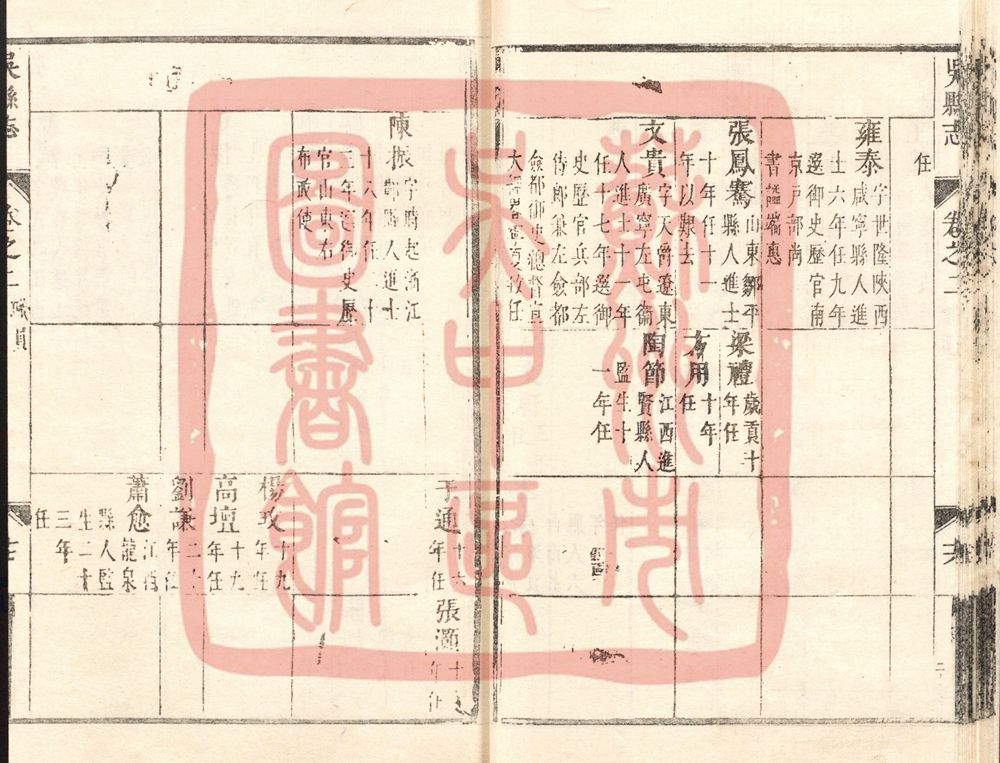 吳縣志
卷之二
任
雍泰
字世隆陝西
咸寧縣人進
士六年任九年
選御史歷官南
京戶部尚
書謚端惠
張鳳騫
山東鄒平
縣人進士
十年任十一
年以艱去
文貴
字天爵遼東
廣寧左屯衛
人進士十一年
任十七年選御
史歷官兵部左
侍郎兼左僉都
僉都御史總督宣
梁禮
歲貢十
年任
方用
十年
任
陶節
江西進
賢縣人
監生十
一年任
陳振
字時起浙江
鄞縣人進士
十八年任二十
三年選御史歷
官山東右
布政使
于通
十六
年任
張灝
楊玫
十九
年任
高壇
十九
年任
劉謙
二十
年任
蕭愈
江西
龍泉
縣人監
生二十
三年
任
吳縣志
卷之二
職員
蘇州市吳中區圖書館